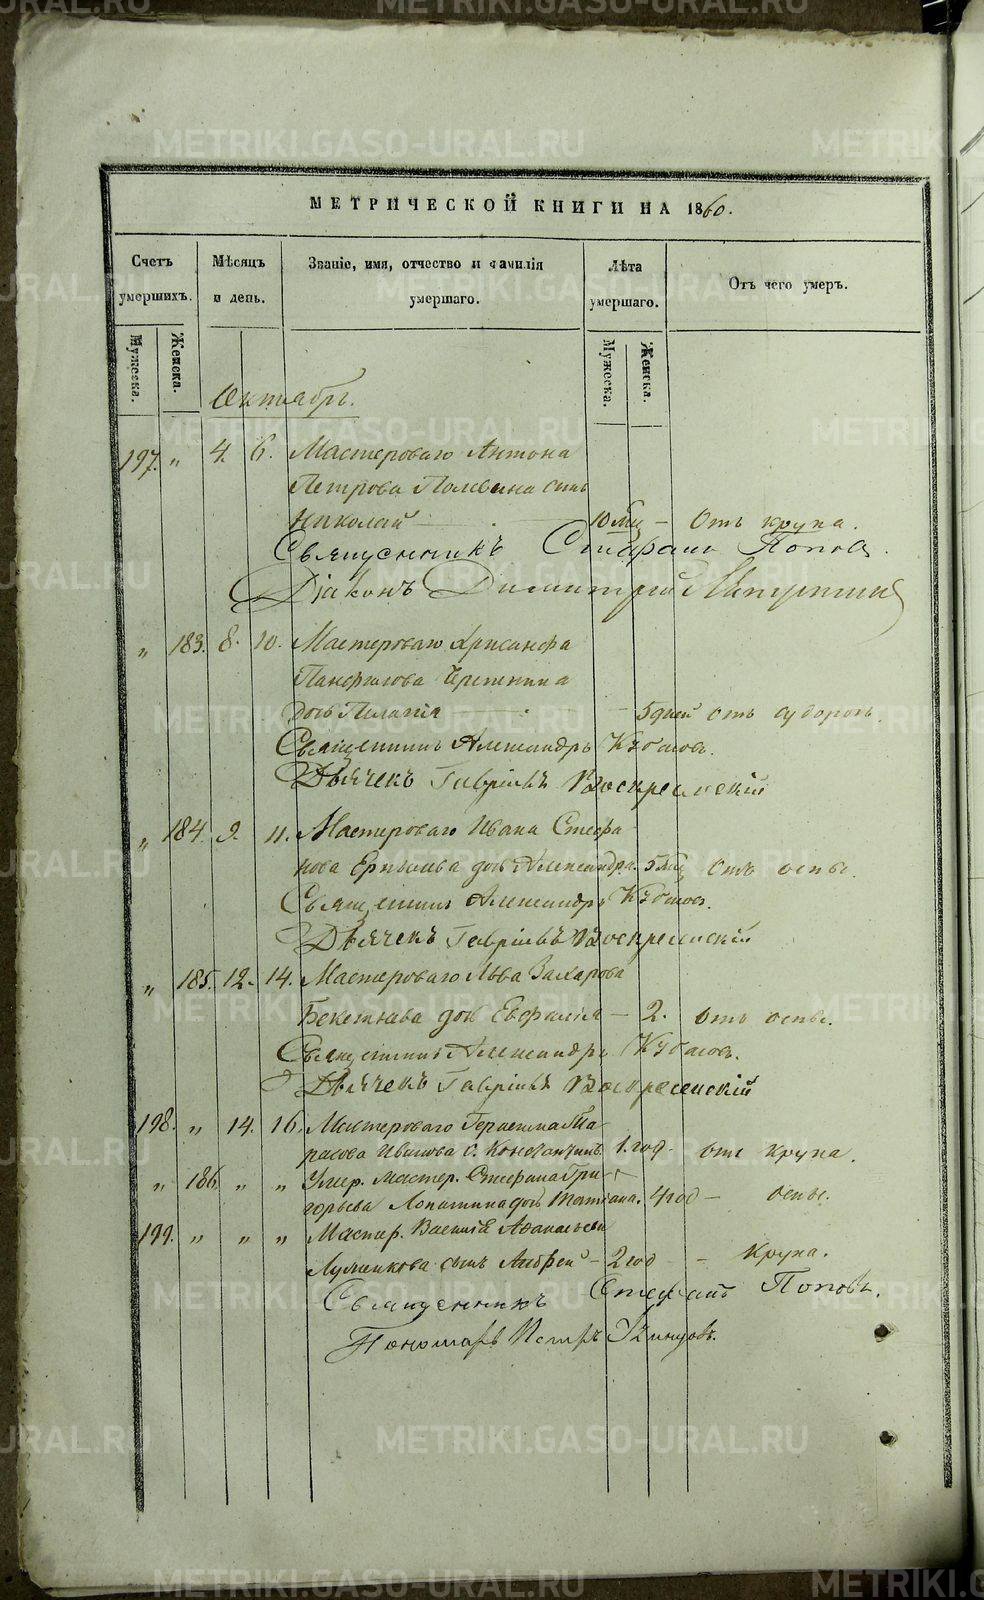 METRIKI.GASO-URAL.RU
МЕТРИЧЕСКОЙ КНИГИ НА 1860.
Счетъ умершихъ.
Мѣсяцъ и день.
Званіе, имя, отчество и фамилія умершаго.
Лѣта умершаго.
Отъ чего умеръ.
Мужеска.
Женска.
Мужеска.
Женска.
Октябрь.
197. " 4. 6. Мастероваго Антона
Петрова сынъ
Николай 10 мѣц – Отъ крупа.
Священникъ Стефанъ Поповъ.
Діаконъ Димитрій
" 183. 8. 10. Мастероваго Хрисанфа
Панфилова
дочь Пелагія 5 дней отъ судорогъ.
Священникъ Александръ
Дьячекъ Гавріилъ Воскресенскій
" 184. 9. 11. Мастероваго Ивана Стефа
нова дочь Александра. 5 мѣц отъ оспы.
Священникъ Александръ
Дьячекъ Гавріилъ Воскресенскій
" 185. 12. 14. Мастероваго Льва Захарова
дочь – 2. отъ оспы.
Священникъ Александръ
Дьячекъ Гавріилъ Воскресенскій
198. " 14. 16. Мастероваго Та
расова с. Константинъ 1. год – отъ крупа.
" 186. " " Умер. мастер. Стефана Гри
горьева Лопатина дочь Татіана. 4 год – оспы.
199. " " " Мастер. Василія Афанасьева
сынъ Андрей – 2 год – крупа.
Священникъ Стефанъ Поповъ.
Пономарь Петръ